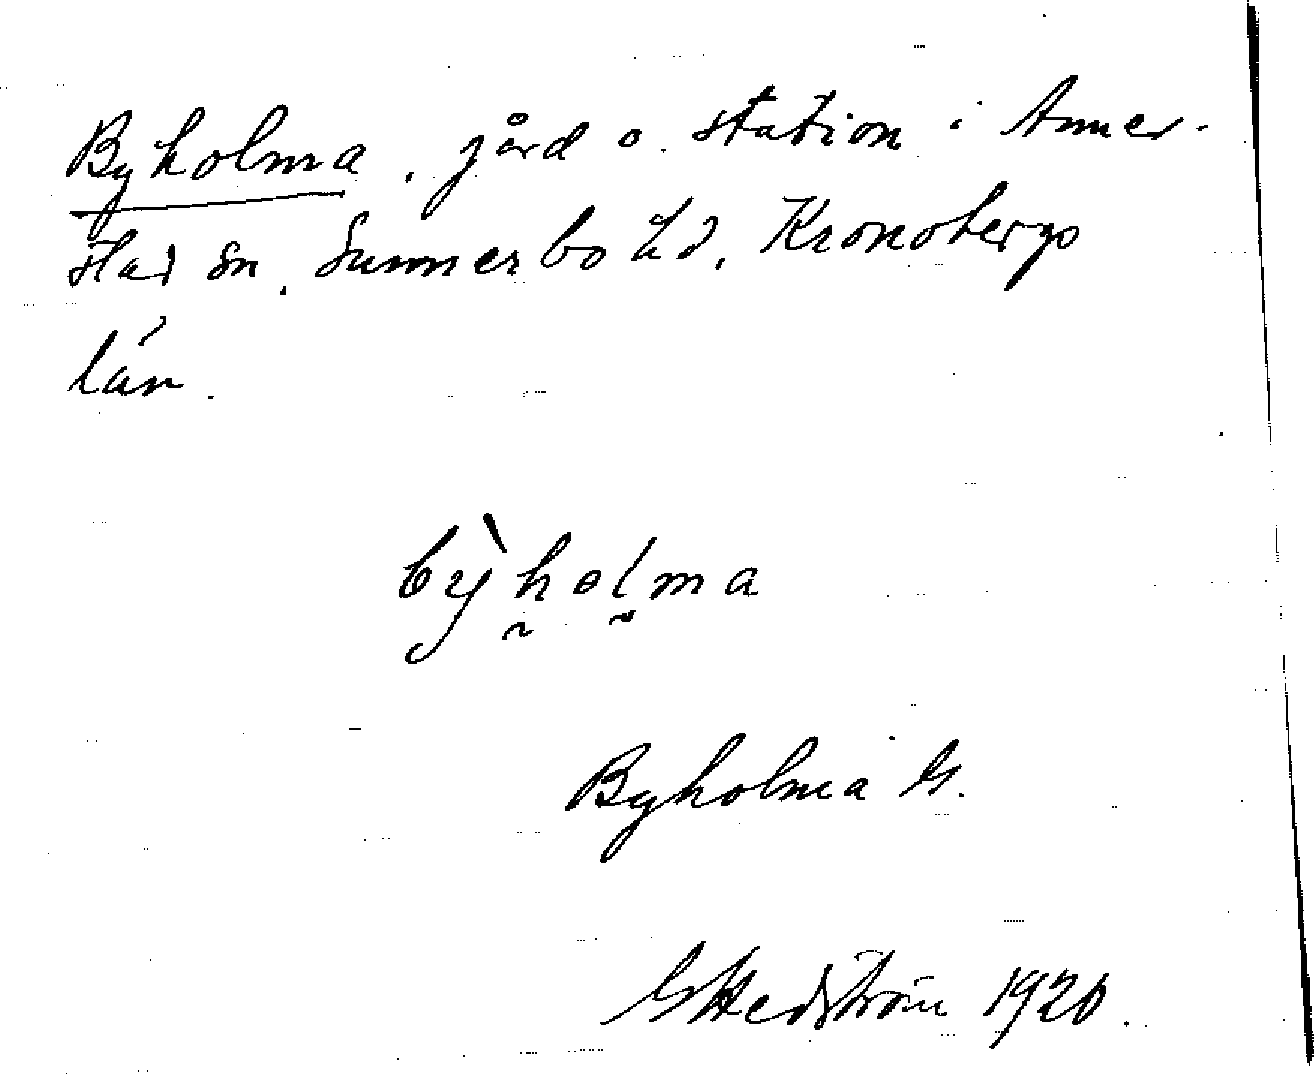 Byholma, gård o. station i Anner-
stad sn, Sunnerbo hd, Kronobergs
län.
by̍holma
Byholma G.
G Hedström 1920.